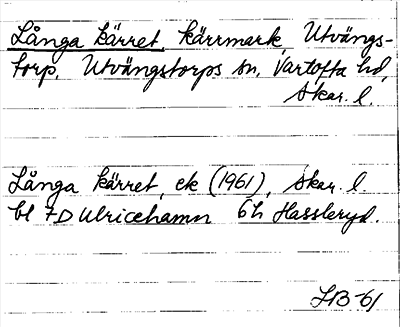 Långa kärret, kärrmark, Utvängs-
torp, Utvängstorps sn, Vartofta hd,
Skar. l.
Långa kärret, ek (1961), Skar. l.
bl 7D Ulricehamn 6h Hassleryd.
HB-61